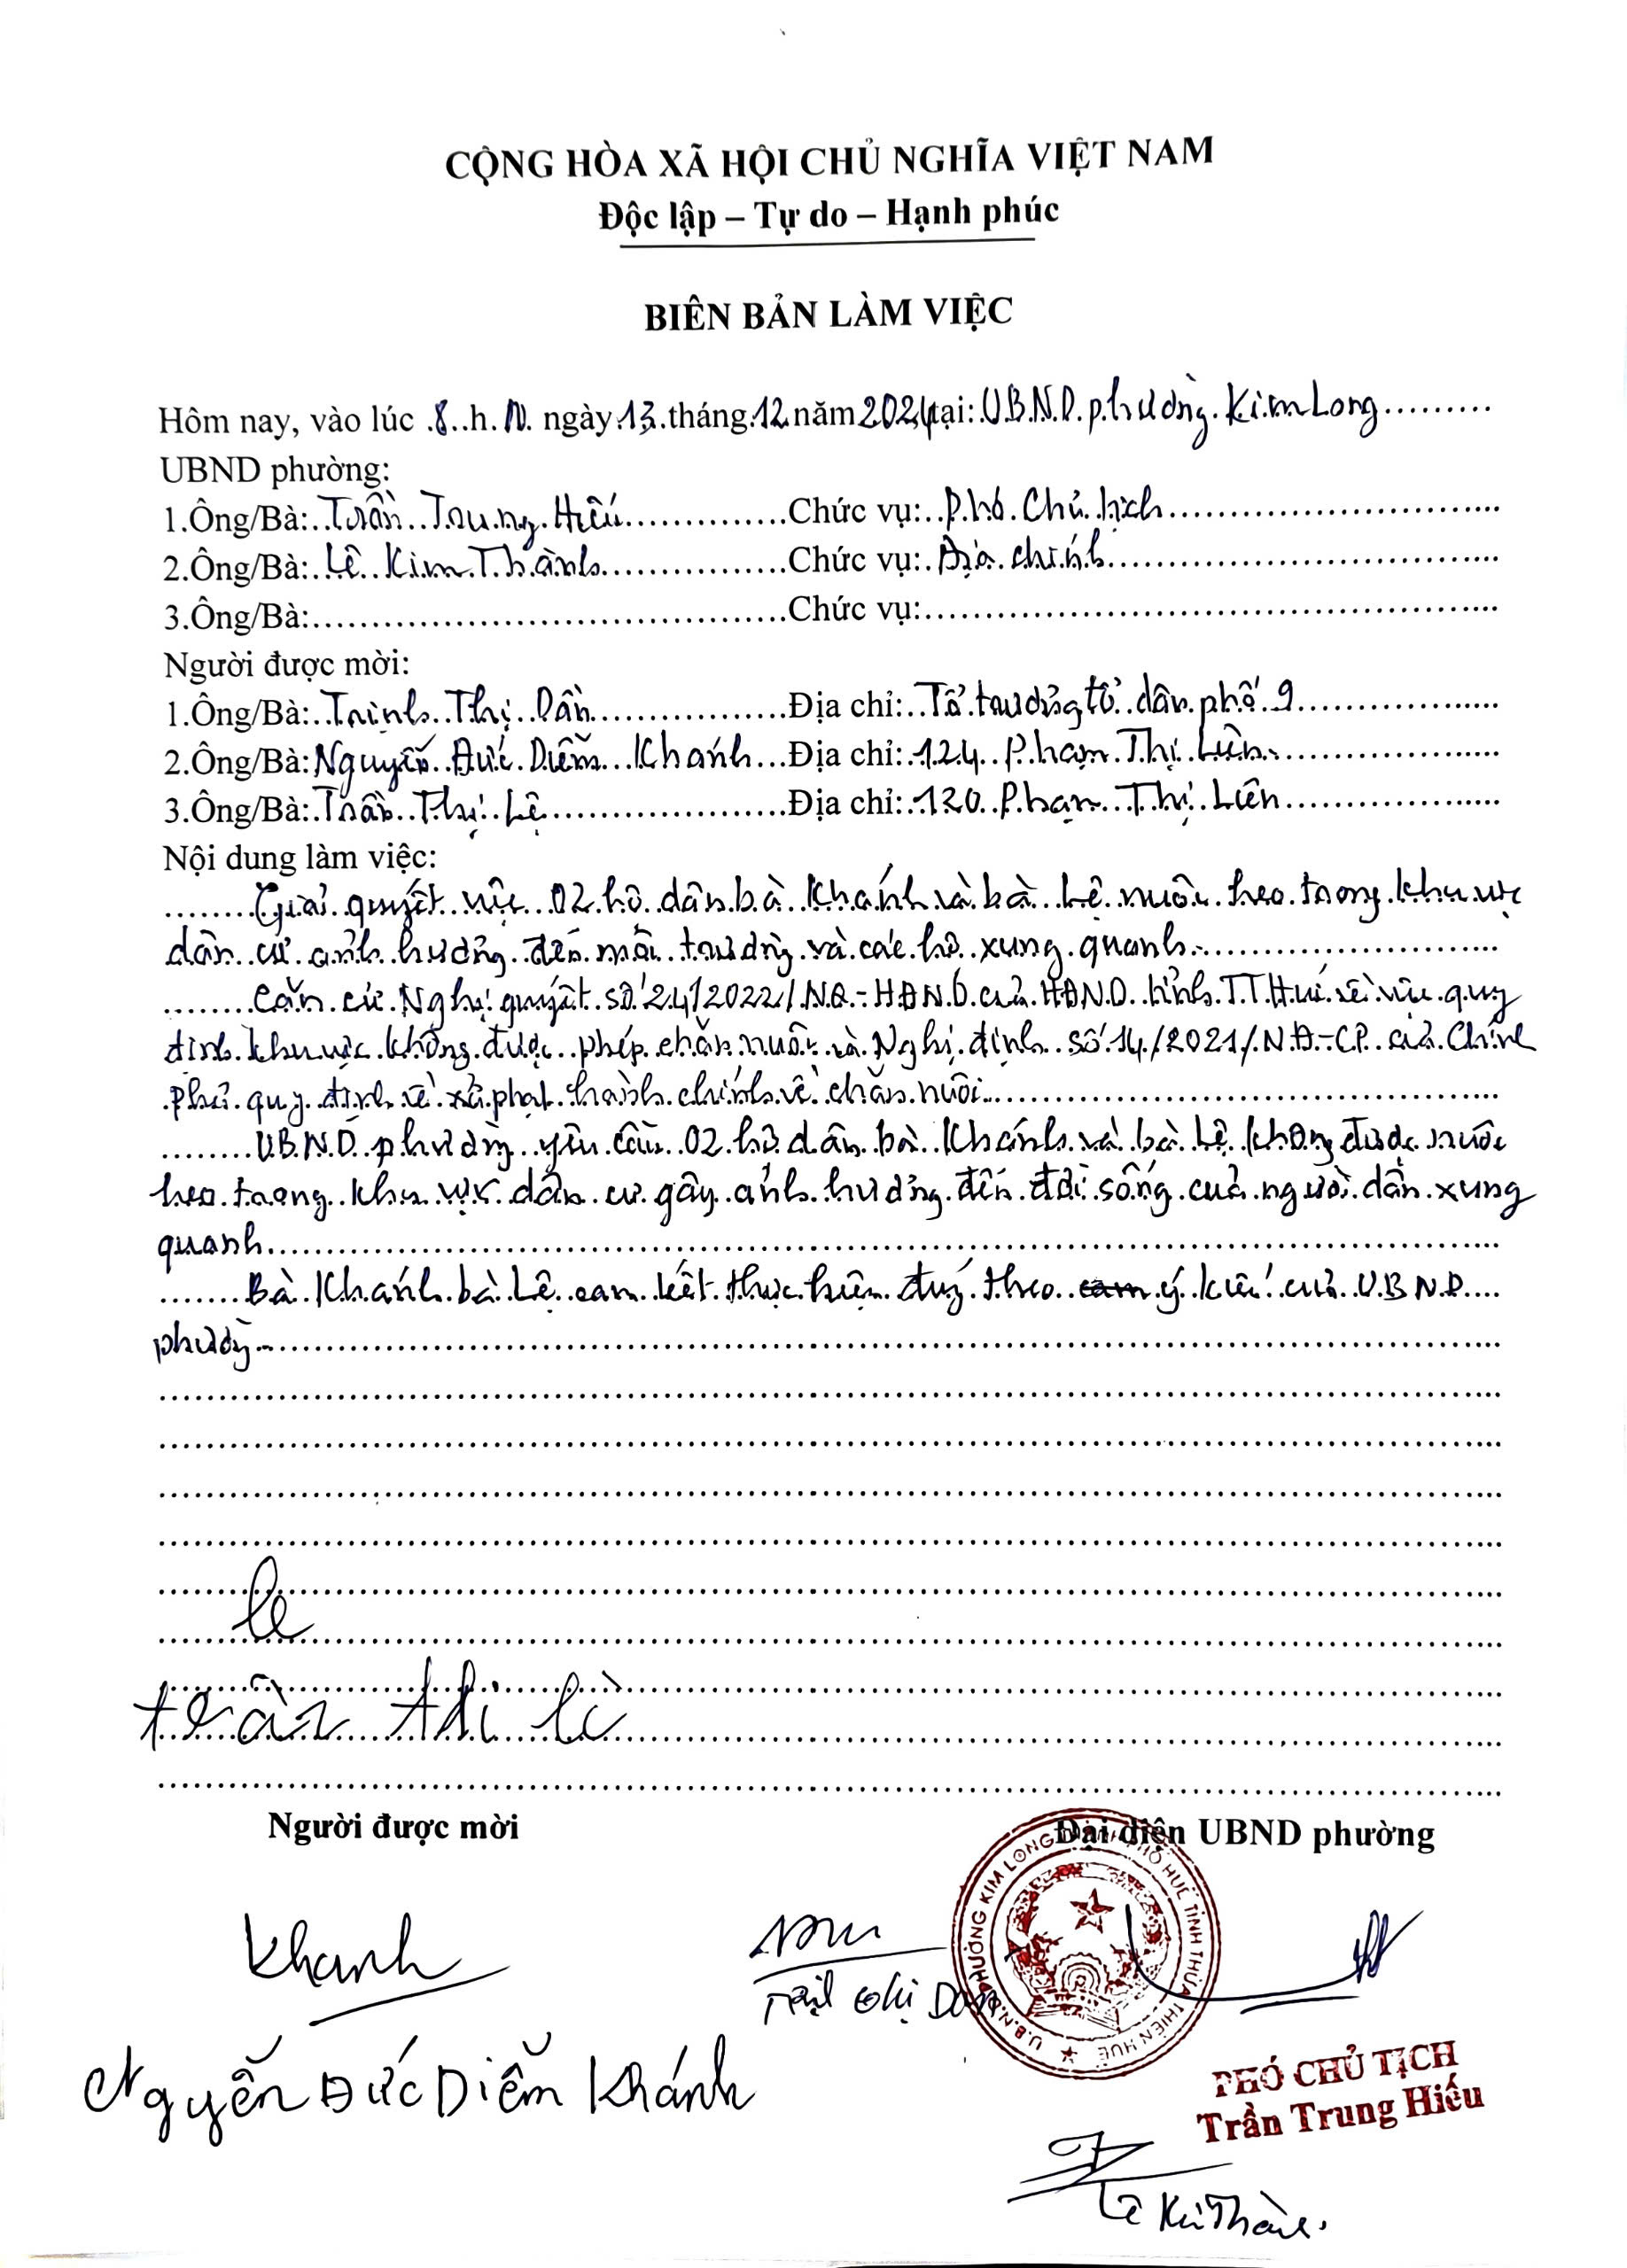 CỘNG HÒA XÃ HỘI CHỦ NGHĨA VIỆT NAM
Độc lập – Tự do – Hạnh phúc
BIÊN BẢN LÀM VIỆC
Hôm nay, vào lúc 8 h ngày 13 tháng 12 năm 2024 tại: U.B.N.D phường Kim Long
UBND phường:
1.Ông/Bà: Trần Trung Hiếu Chức vụ: Phó Chủ tịch
2.Ông/Bà: Lê Kim Thành Chức vụ: Địa chính
3.Ông/Bà: Chức vụ:
Người được mời:
1.Ông/Bà: Trịnh Thị Dần Địa chỉ: Tổ trưởng tổ dân phố 9
2.Ông/Bà: Nguyễn Đức Diễm Khánh Địa chỉ: 124 Phạm Thị Liên
3.Ông/Bà: Trần Thị Lệ Địa chỉ: 120 Phạm Thị Liên
Nội dung làm việc:
Giải quyết việc 02 hộ dân bà Khánh và bà Lệ nuôi heo trong khu vực
dân cư ảnh hưởng đến môi trường và các hộ xung quanh.
Căn cứ Nghị quyết số 24/2022/NQ-HĐND của HĐND tỉnh TT Huế về việc quy
định khu vực không được phép chăn nuôi và Nghị định số 14/2021/NĐ-CP của Chính
phủ quy định về xử phạt hành chính về chăn nuôi.
U.B.N.D phường yêu cầu 02 hộ dân bà Khánh và bà Lệ không được nuôi
heo trong khu vực dân cư gây ảnh hưởng đến đời sống của người dân xung
quanh.
Bà Khánh bà Lệ cam kết thực hiện đúng theo ý kiến của U.B.N.D
phường.
lê
trần thi lê
Người được mời Đại diện UBND phường
Khanh
Trịnh Thị Dần
U.B.N.D PHƯỜNG KIM LONG THÀNH PHỐ HUẾ TỈNH THỪA THIÊN HUẾ
Nguyễn Đức Diễm Khánh
PHÓ CHỦ TỊCH
Trần Trung Hiếu
Lê Kim Thành